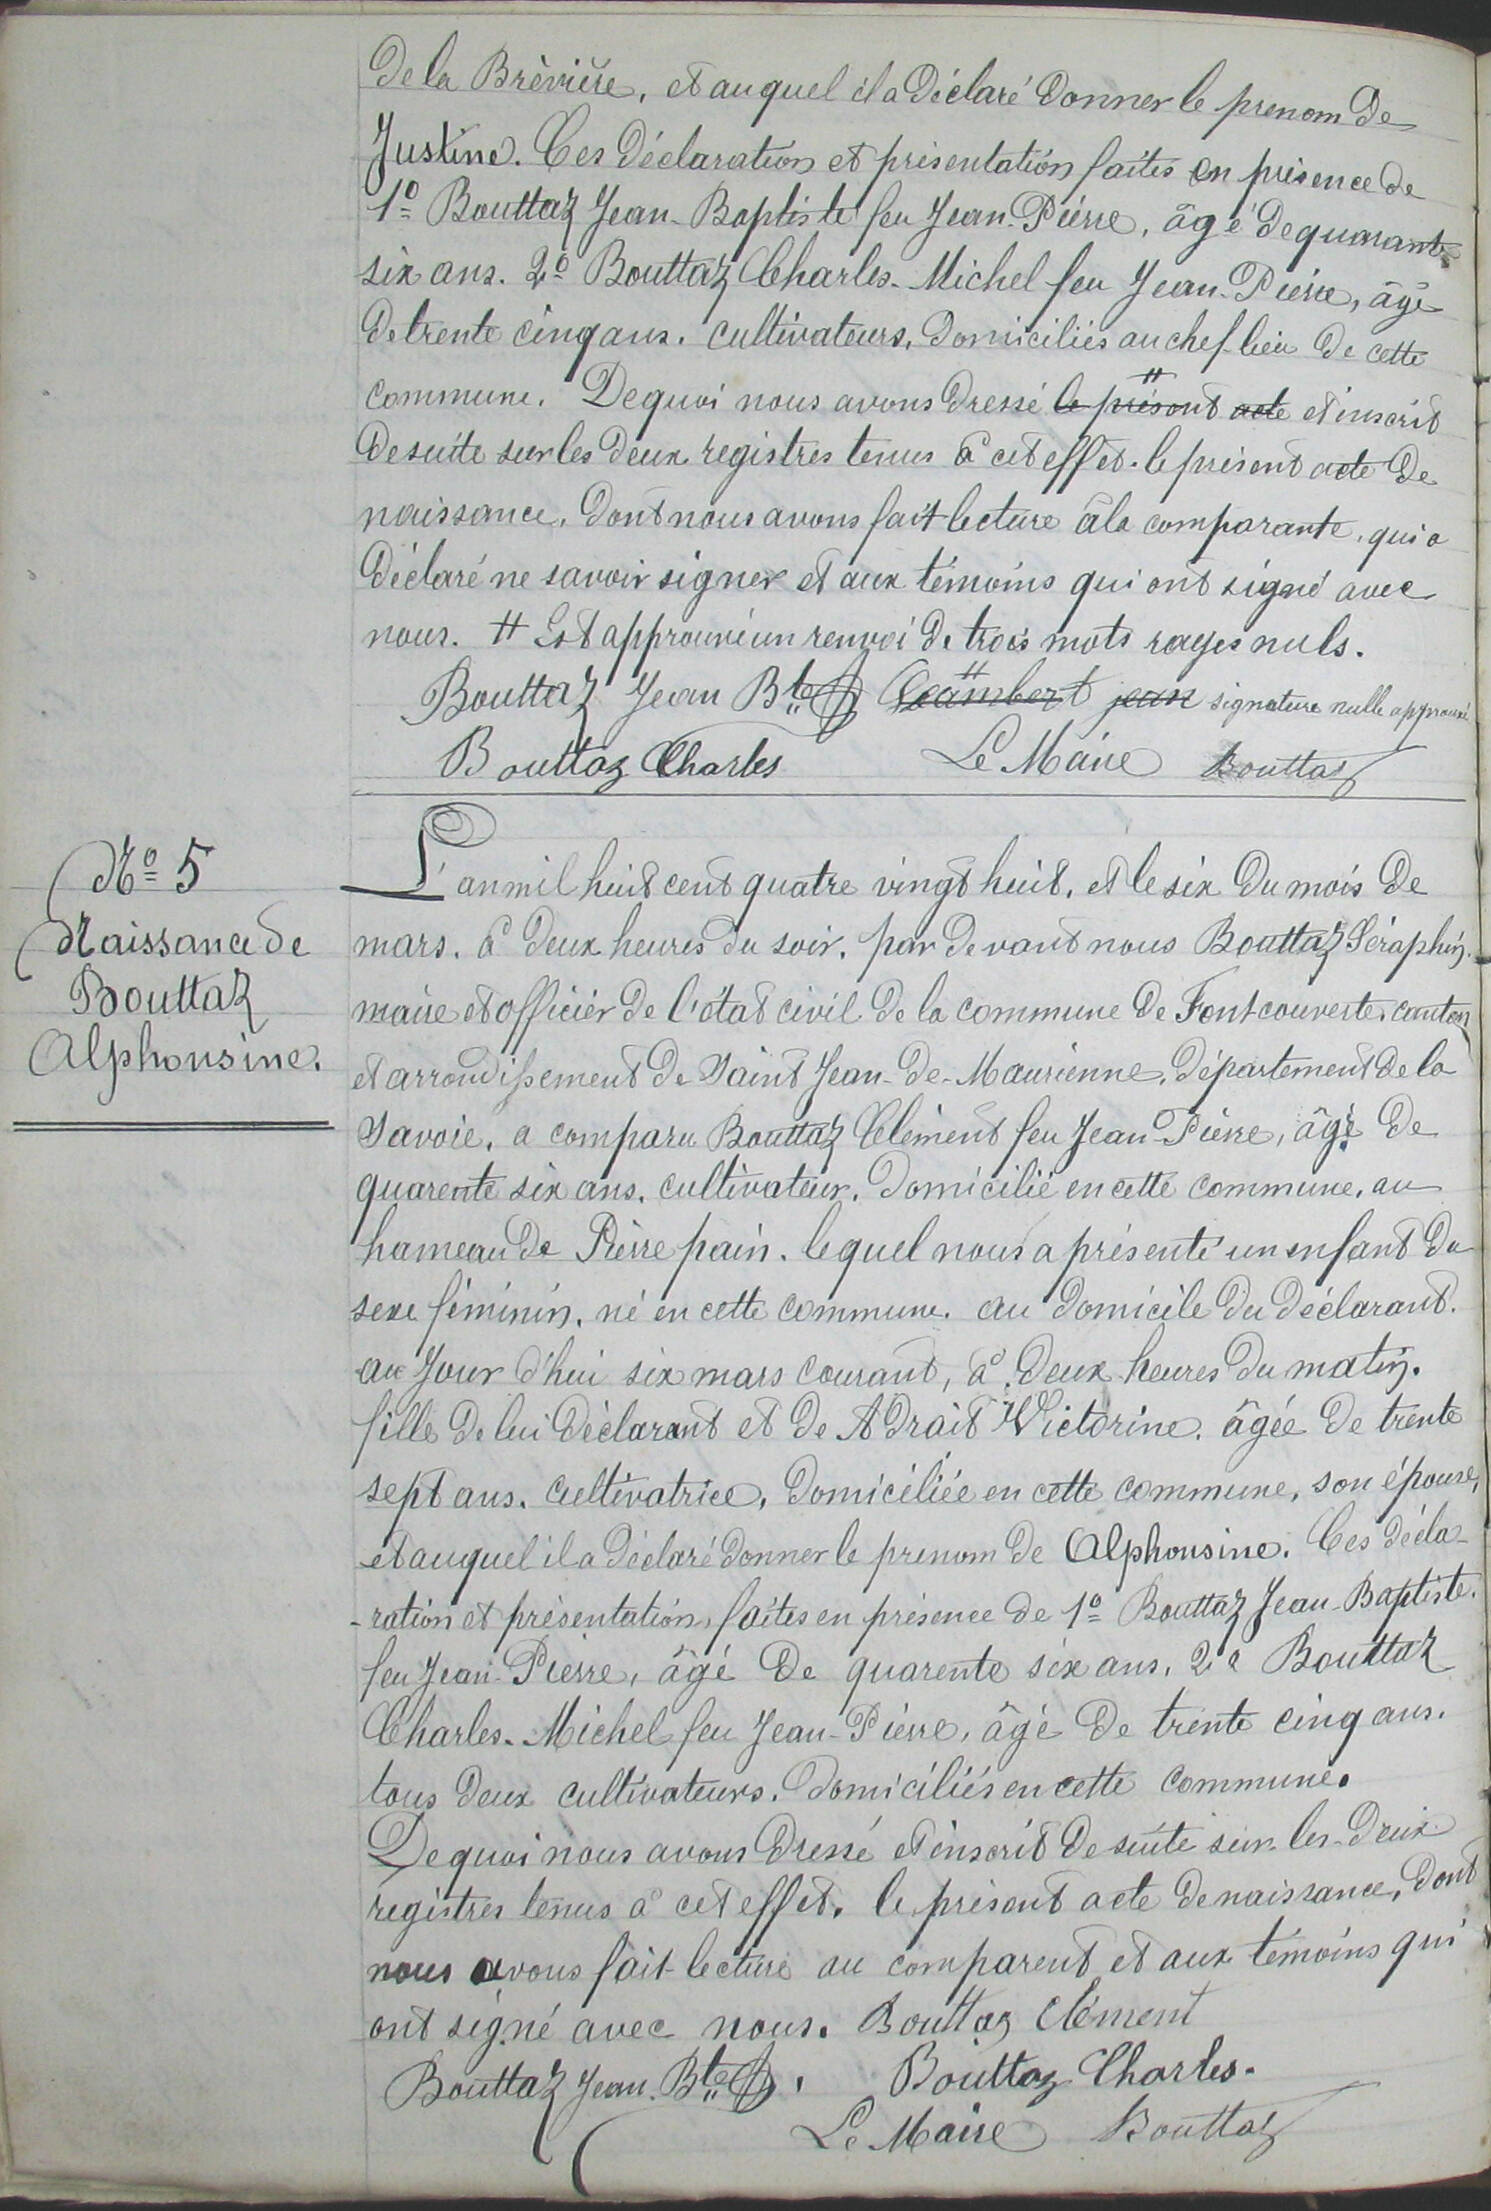 de la Brèvière, et auquel il a déclaré donner le prenom de
Justine. Ces déclaration et présentation faites en présence de
1º Bouttaz Jean-Baptiste feu Jean-Pierre, âgé de quarante
six ans. 2º Bouttaz Charles-Michel feu Jean-Pierre, âgé
de trente cinq ans. cultivateurs, domiciliés au chef-lieu de cette
commune. De quoi nous avons dressé le présent acte et inscrit
de suite sur les deux registres tenus à cet effet. le présent acte de
naissance, dont nous avons fait lecture à la comparante, qui a
déclaré ne savoir signer et aux témoins qui ont signé avec
nous. # Est approuvé un renvoi de trois mots rayés nuls.
Bouttaz Jean Bte jean signature nulle approuvé
Bouttaz Charles Le Maire Bouttaz
Nº 5
Naissance de
Bouttaz
Alphonsine.
L'an mil huit cent quatre vingt huit, et le six du mois de
mars, à deux heures du soir, par devant nous Bouttaz Séraphin,
maire et officier de l'état civil de la commune de Fontcouverte, canton
et arrondissement de Saint Jean-de-Maurienne, département de la
Savoie, a comparu Bouttaz Clément feu Jean-Pierre, âgé de
quarente six ans, cultivateur, domicilié en cette commune, au
hameau de Pierre pain. lequel nous a présenté un enfant du
sexe féminin, né en cette commune, au domicile du déclarant.
au Jour d'hui six mars courant, à deux heures du matin.
fille de lui déclarant et de Adrait Victorine, âgée de trente
sept ans, cultivatrice, domiciliée en cette commune, son épouse,
et auquel il a déclaré donner le prenom de Alphonsine. Ces décla-
-ration et présentation, faites en présence de 1º Bouttaz Jean-Baptiste.
feu Jean-Pierre, âgé de quarente six ans, 2º Bouttaz
Charles-Michel feu Jean-Pierre, âgé de trente cinq ans.
tous deux cultivateurs, domiciliés en cette commune.
De quoi nous avons dressé et inscrit de suite sur les deux
registres tenus à cet effet, le présent acte de naissance, dont
nous avons fait lecture au comparent et aux témoins qui
ont signé avec nous. Bouttaz Clément
Bouttaz Jean Bte. Bouttaz Charles.
Le Maire Bouttaz